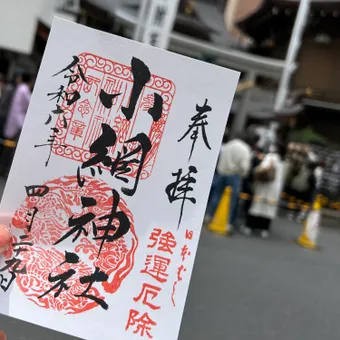 奉拝
日本ばし
強運厄除
小網神社
令和六年
四月二日